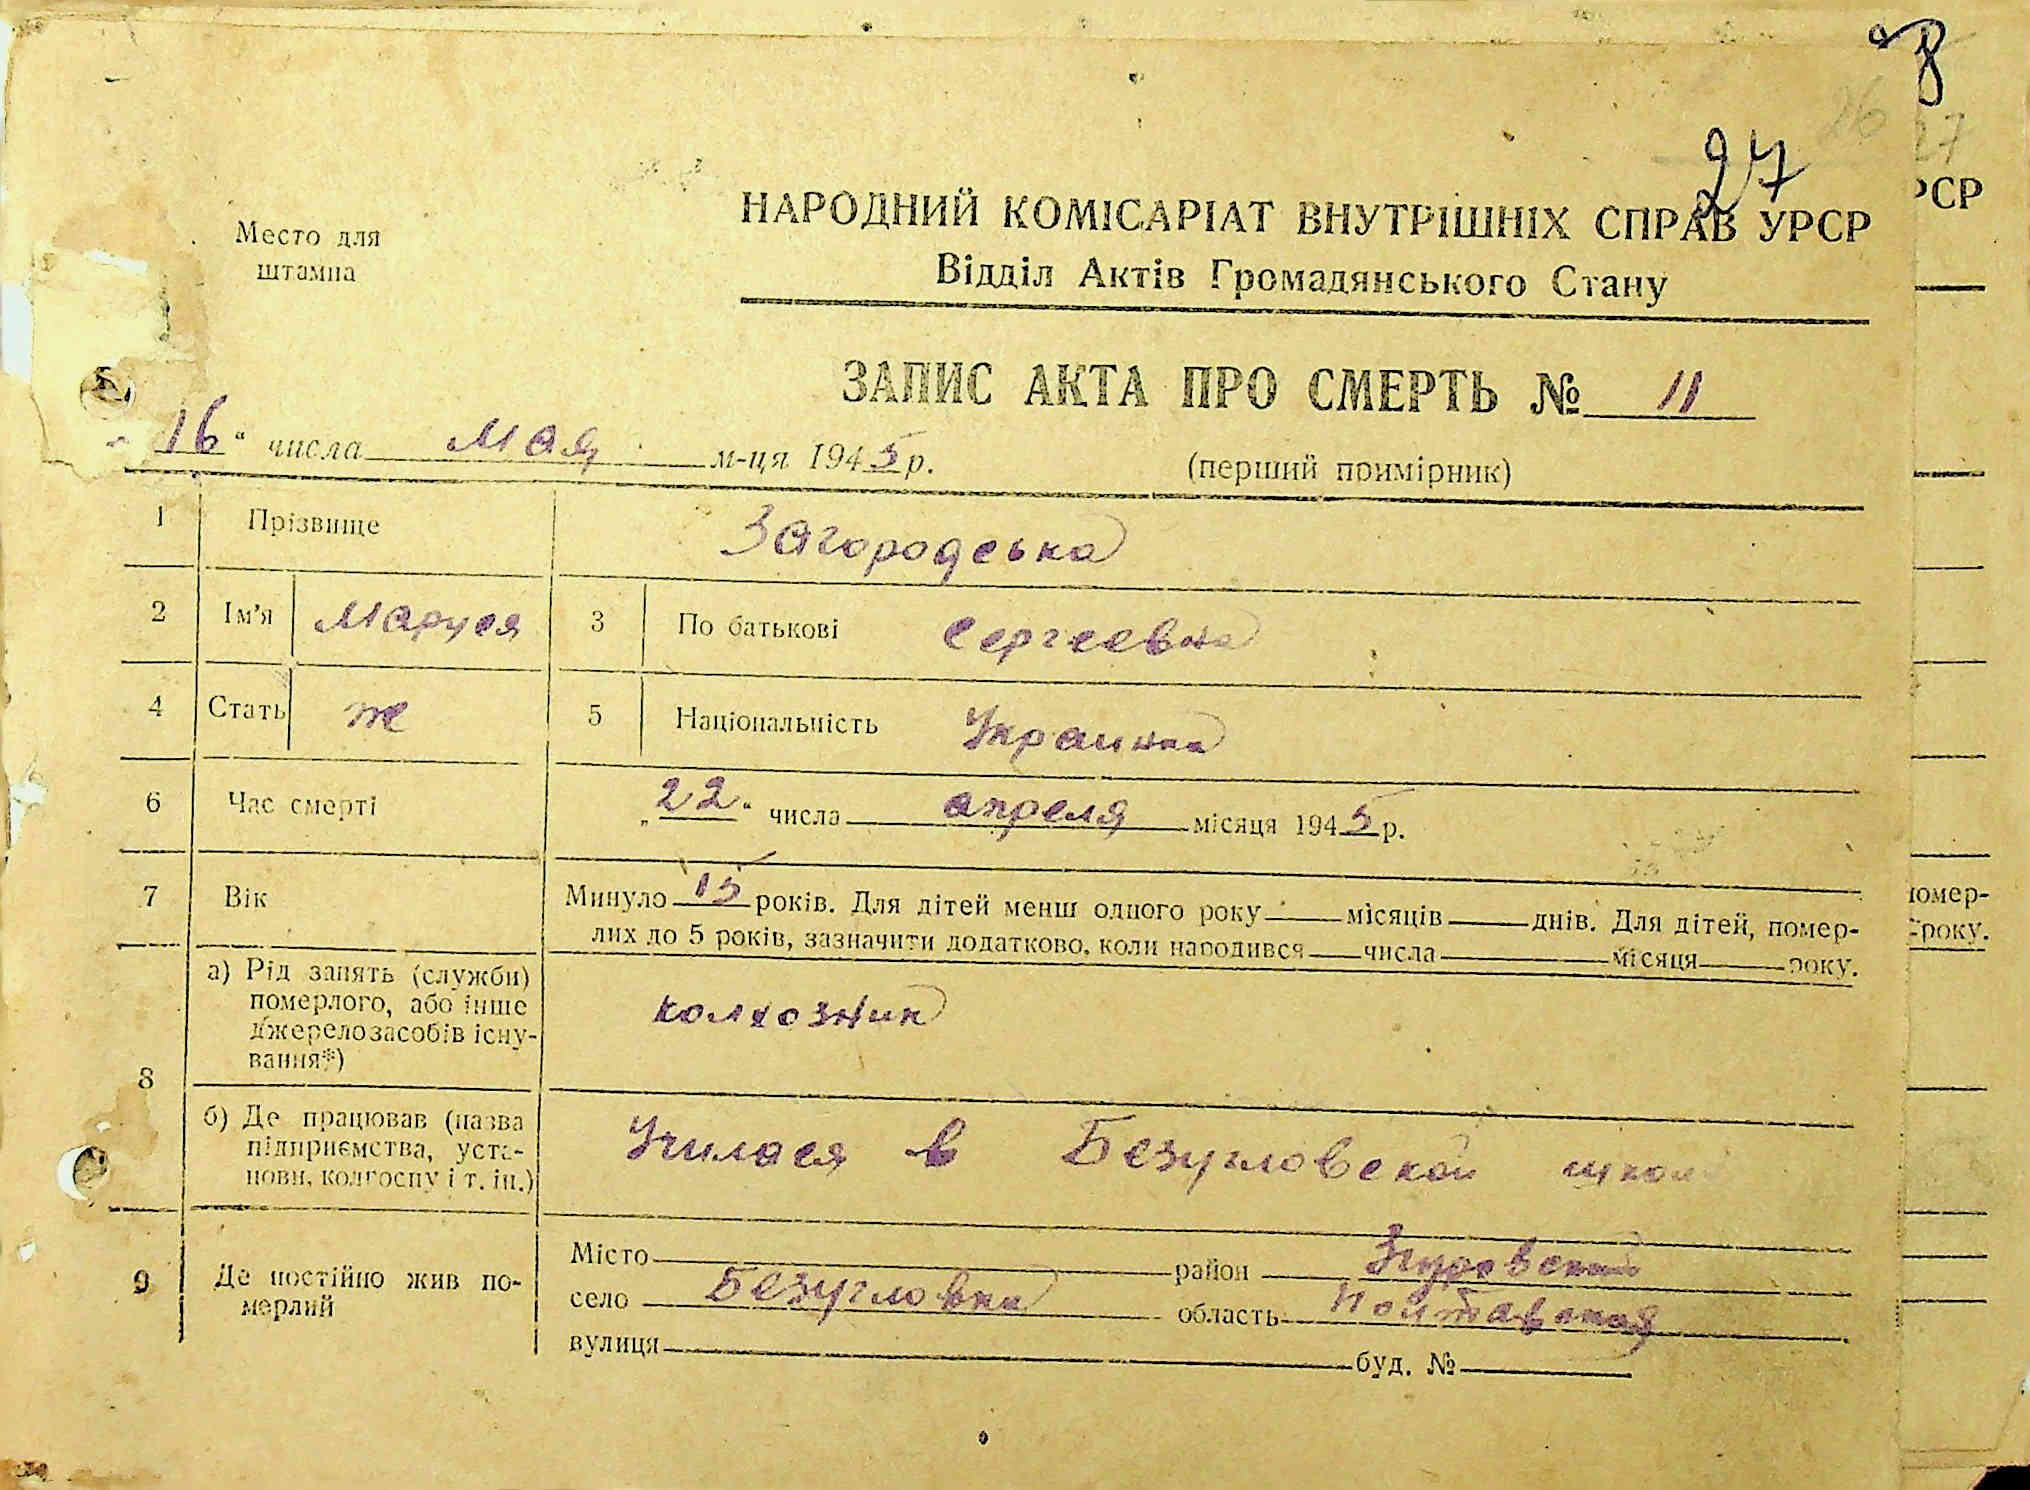 28
26
27
27
РСР
Место для
штампа
НАРОДНИЙ КОМІСАРІАТ ВНУТРІШНІХ СПРАВ УРСР
Відділ Актів Громадянського Стану
ЗАПИС АКТА ПРО СМЕРТЬ № 11
„16“ числа мая м-ця 1945 р. (перший примірник)
1 Прізвище Загородська
2 Ім’я Маруся 3 По батькові Сергеевна
4 Стать ж 5 Національність Украинка
6 Час смерті „22“ числа апреля місяця 1945 р.
7 Вік Минуло 15 років. Для дітей менш одного року — місяців — днів. Для дітей, помер-
лих до 5 років, зазначити додатково, коли народився — числа — місяця — року.
помер-
року.
8 а) Рід занять (служби)
померлого, або інше
джерело засобів існу-
вання*)
колхозник
б) Де працював (назва
підприємства, уста-
нови, колгоспу і т. ін.)
Училася в Безугловской школ
9 Де постійно жив по-
мерлий
Місто район Згуровский
село Безугловка область Полтавская
вулиця буд. №